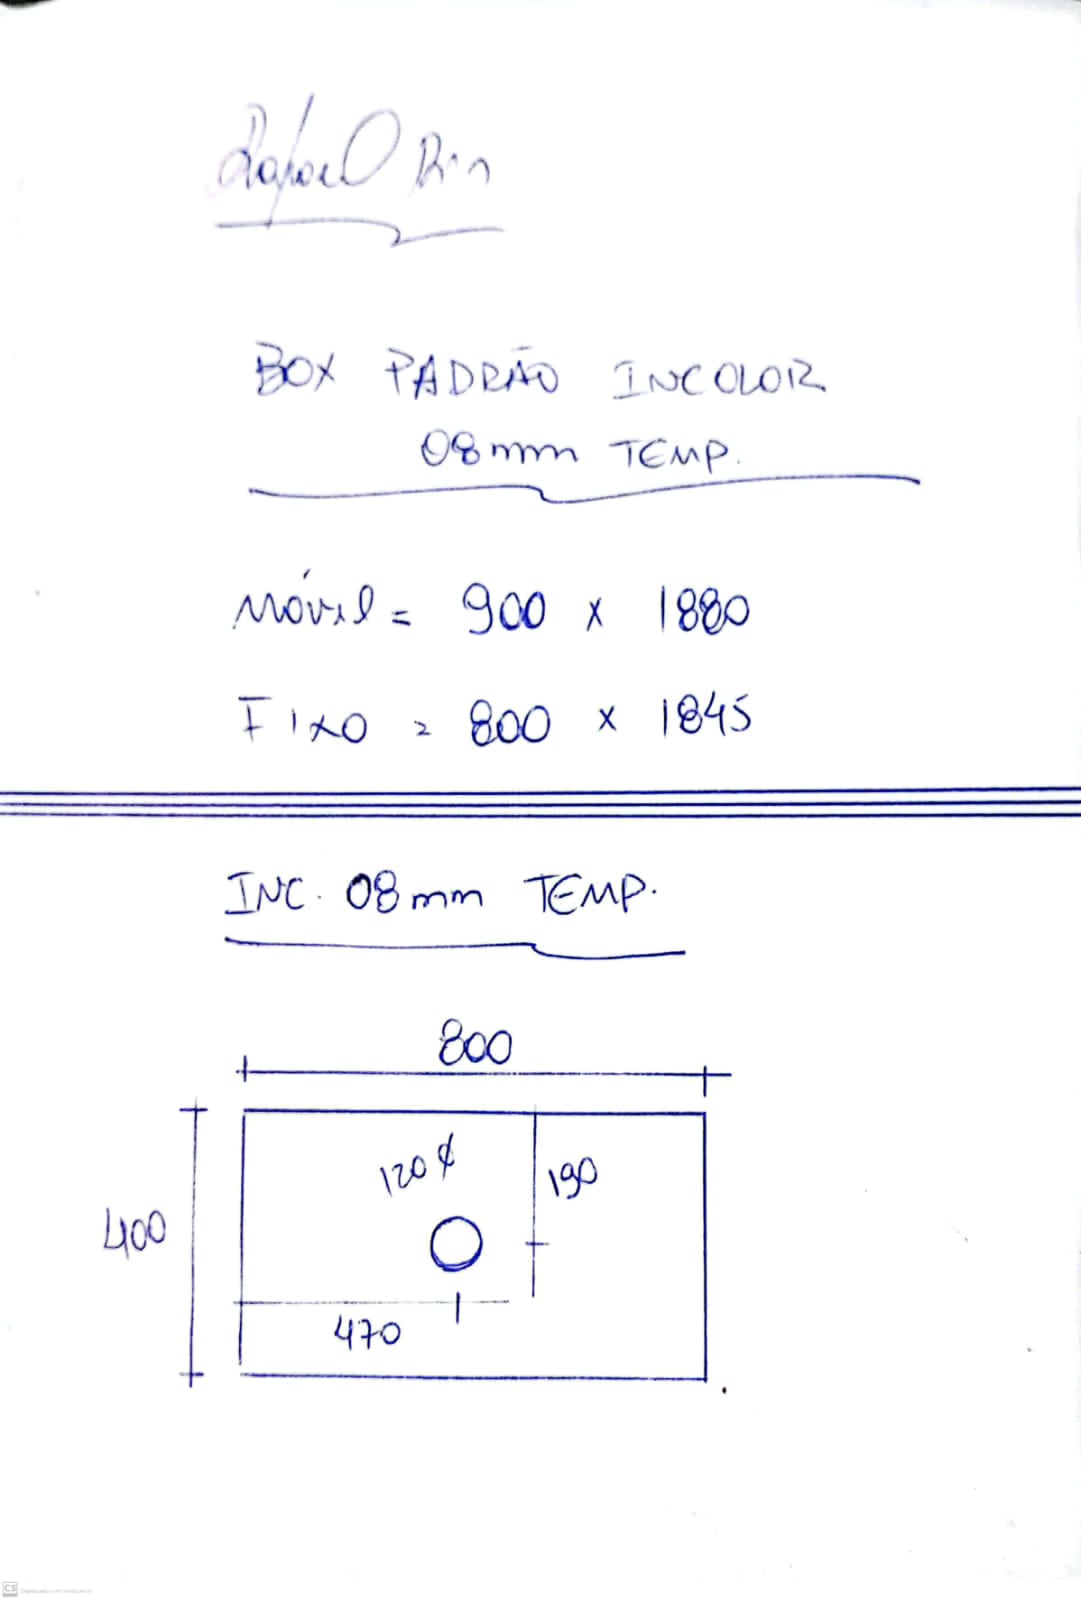 Rafael
BOX PADRÃO INCOLOR
08mm TEMP.
MÓVIL = 900 x 1880
FIXO = 800 x 1845
INC. 08mm TEMP.
800
120 ¢
190
400
470
CS